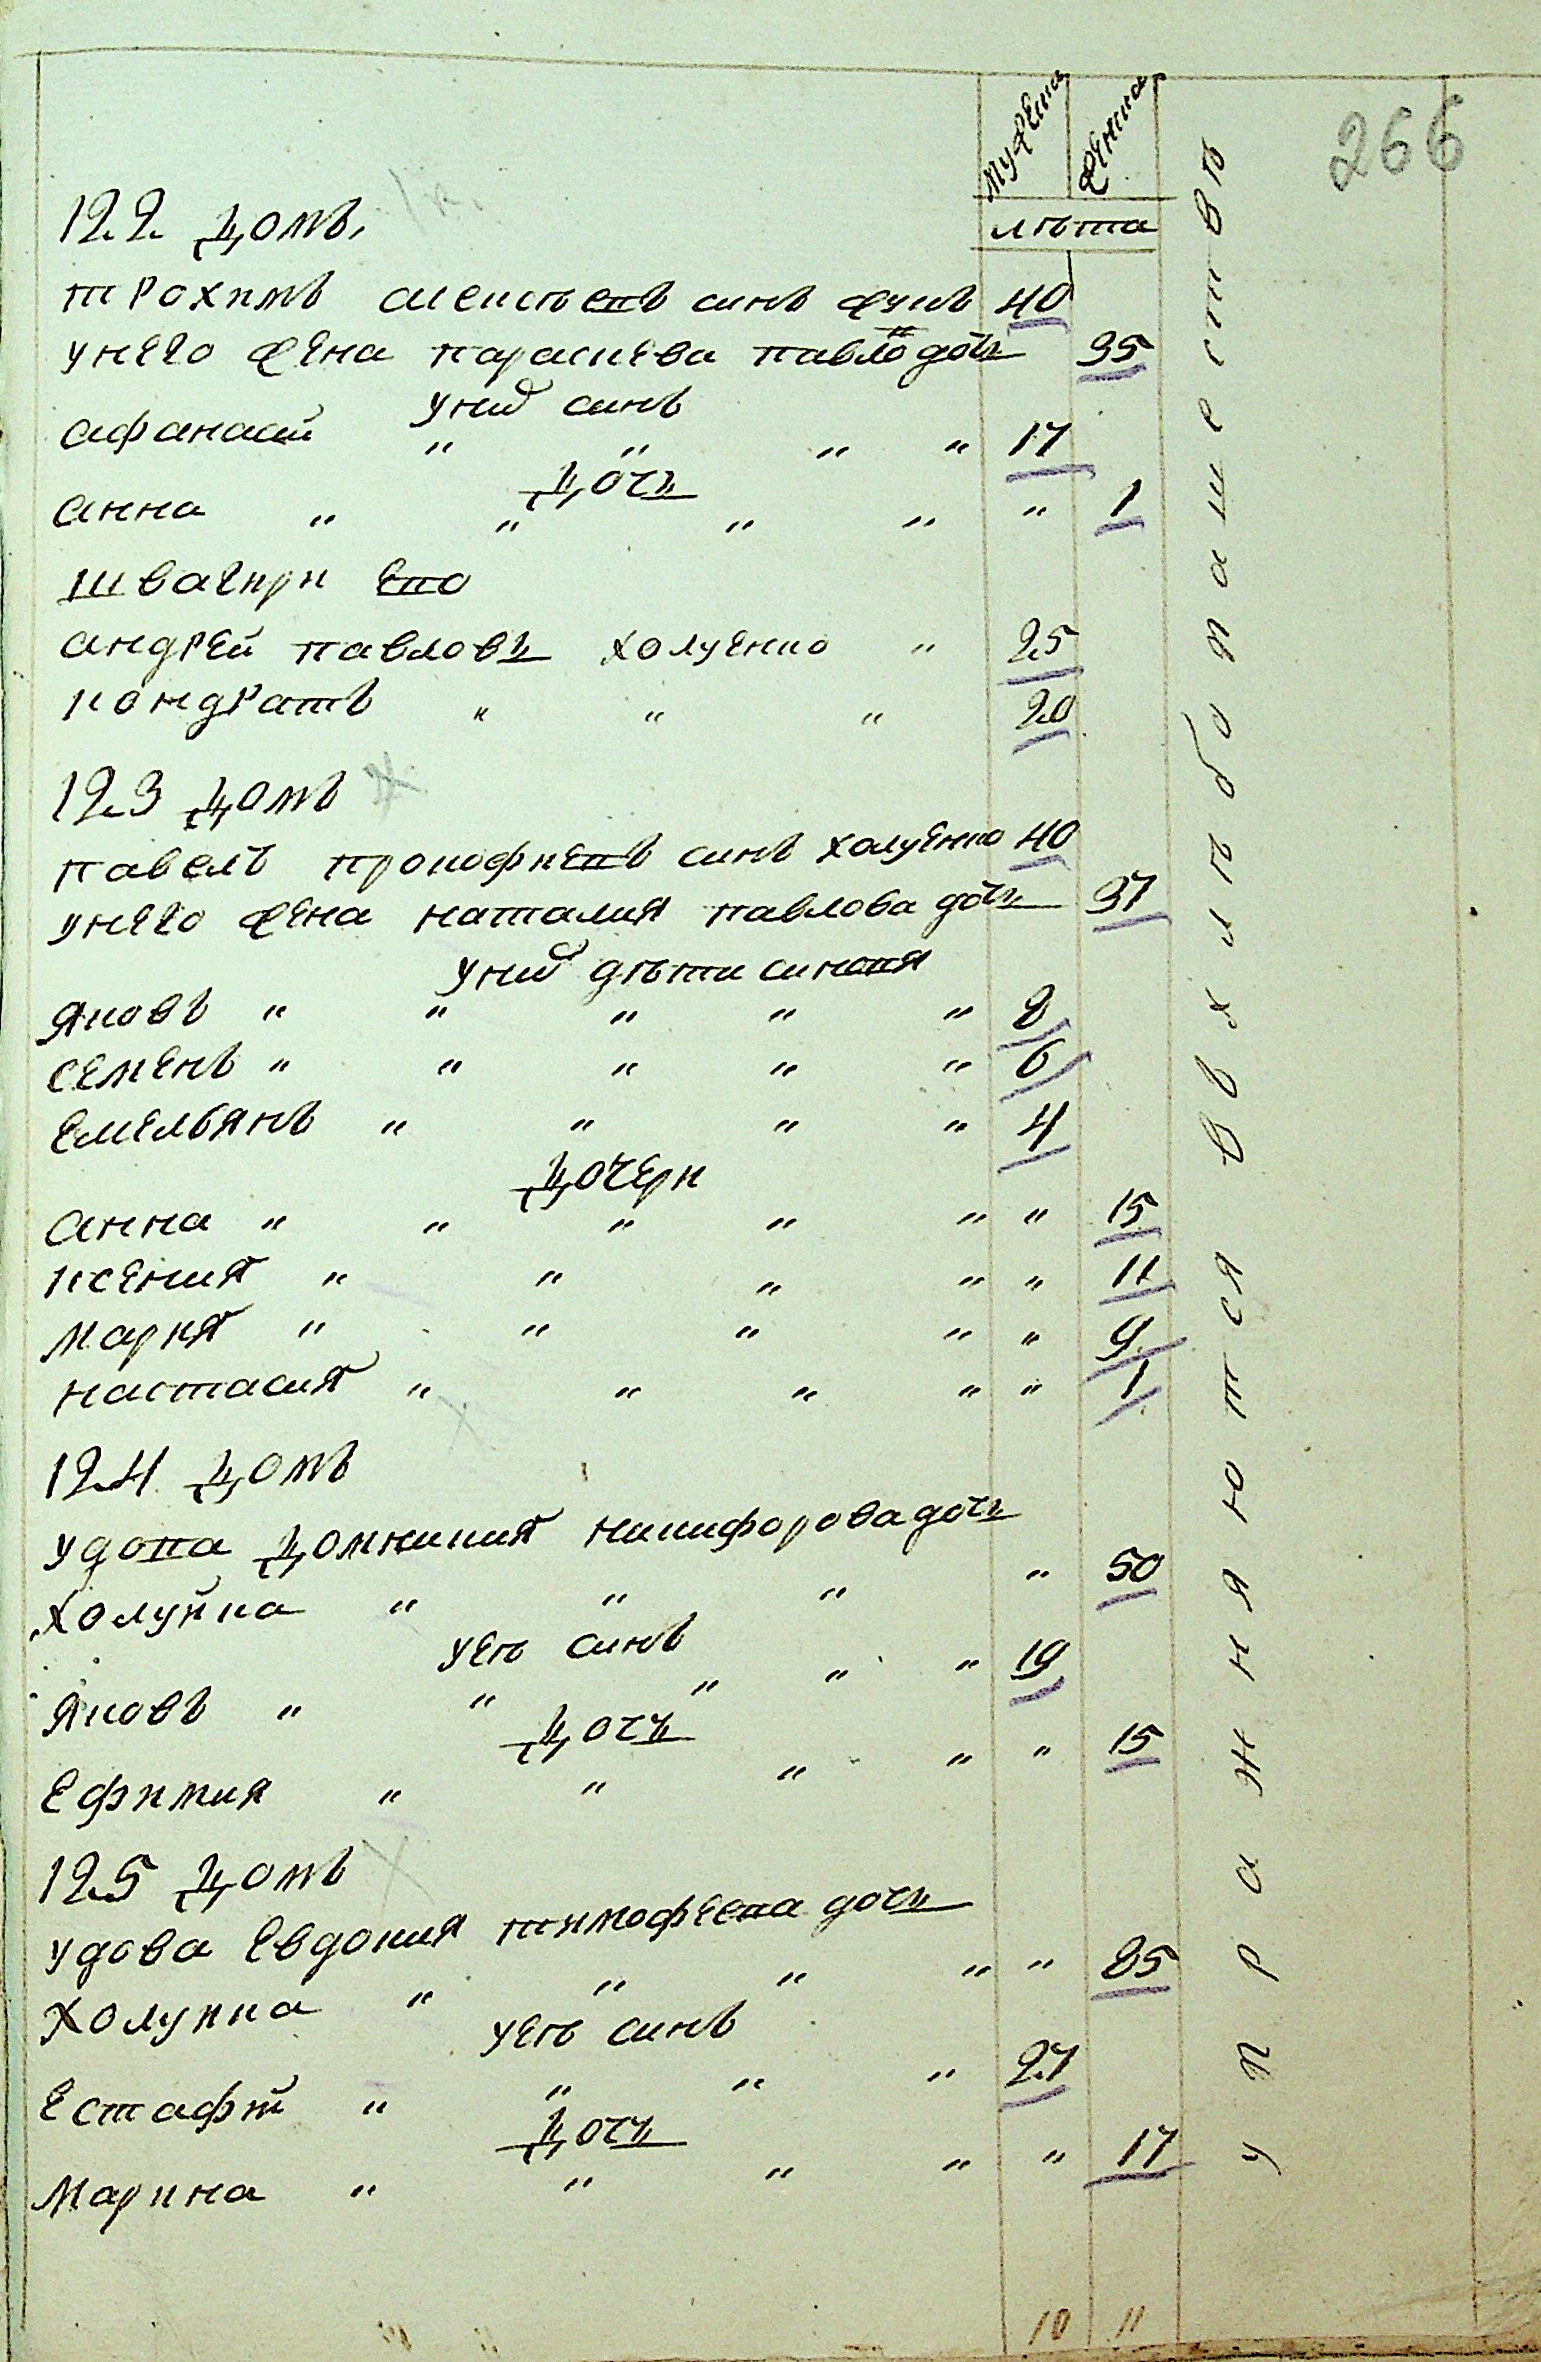 266
мужеска женска
лѣта
122 домъ,
трохимъ алексѣевъ синъ жукъ 40
унего жена параскева павло дочь 35
уних синъ
афанасій " " " " 17
дочь
анна " " " " " 1
швагири его
андрей павловъ холуенко " 25
кондратъ " " " 20
123 домъ
павелъ прокофиевъ синъ холуенко 40
унего жена наталия павлова дочь 37
уних дѣти синовя
яковъ " " " " " 8
семенъ " " " " " 6
емельянъ " " " " 4
дочери
анна " " " " " " 15
ксения " " " " " 11
мария " " " " " 9
настасия " " " " " 1
124 домъ
удова домникия никифорова дочь
холуйка " " " " 50
уеѣ синъ
яковъ " " " " " 19
дочь
Ефимия " " " " " 15
125 домъ
удова Евдокия тимофеева дочь
холуйка " " " " " 85
уеѣ синъ
Естафій " " " " 27
дочь
Марина " " " " " 17
10 11
упражняются въ хлѣбопашествѣ